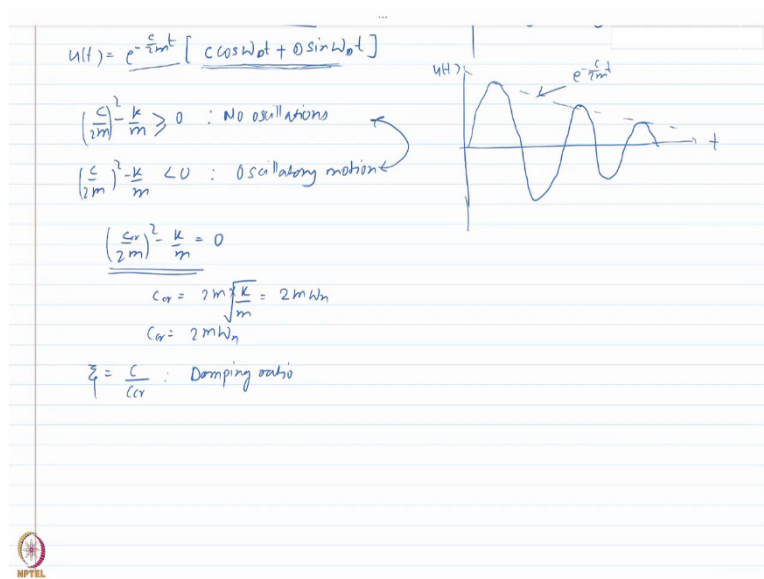 ...
u(t) = e^{-\frac{c}{2m}t} [ C cos ω_D t + D sin ω_D t ]
u(t)
e^{-\frac{c}{2m}t}
t
(\frac{c}{2m})^2 - \frac{k}{m} ≥ 0 : No oscillations
(\frac{c}{2m})^2 - \frac{k}{m} < 0 : Oscillatory motion
(\frac{c_{cr}}{2m})^2 - \frac{k}{m} = 0
c_{cr} = 2m\sqrt{\frac{k}{m}} = 2mω_n
c_{cr} = 2mω_n
ξ = \frac{c}{c_{cr}} : Damping ratio
NPTEL